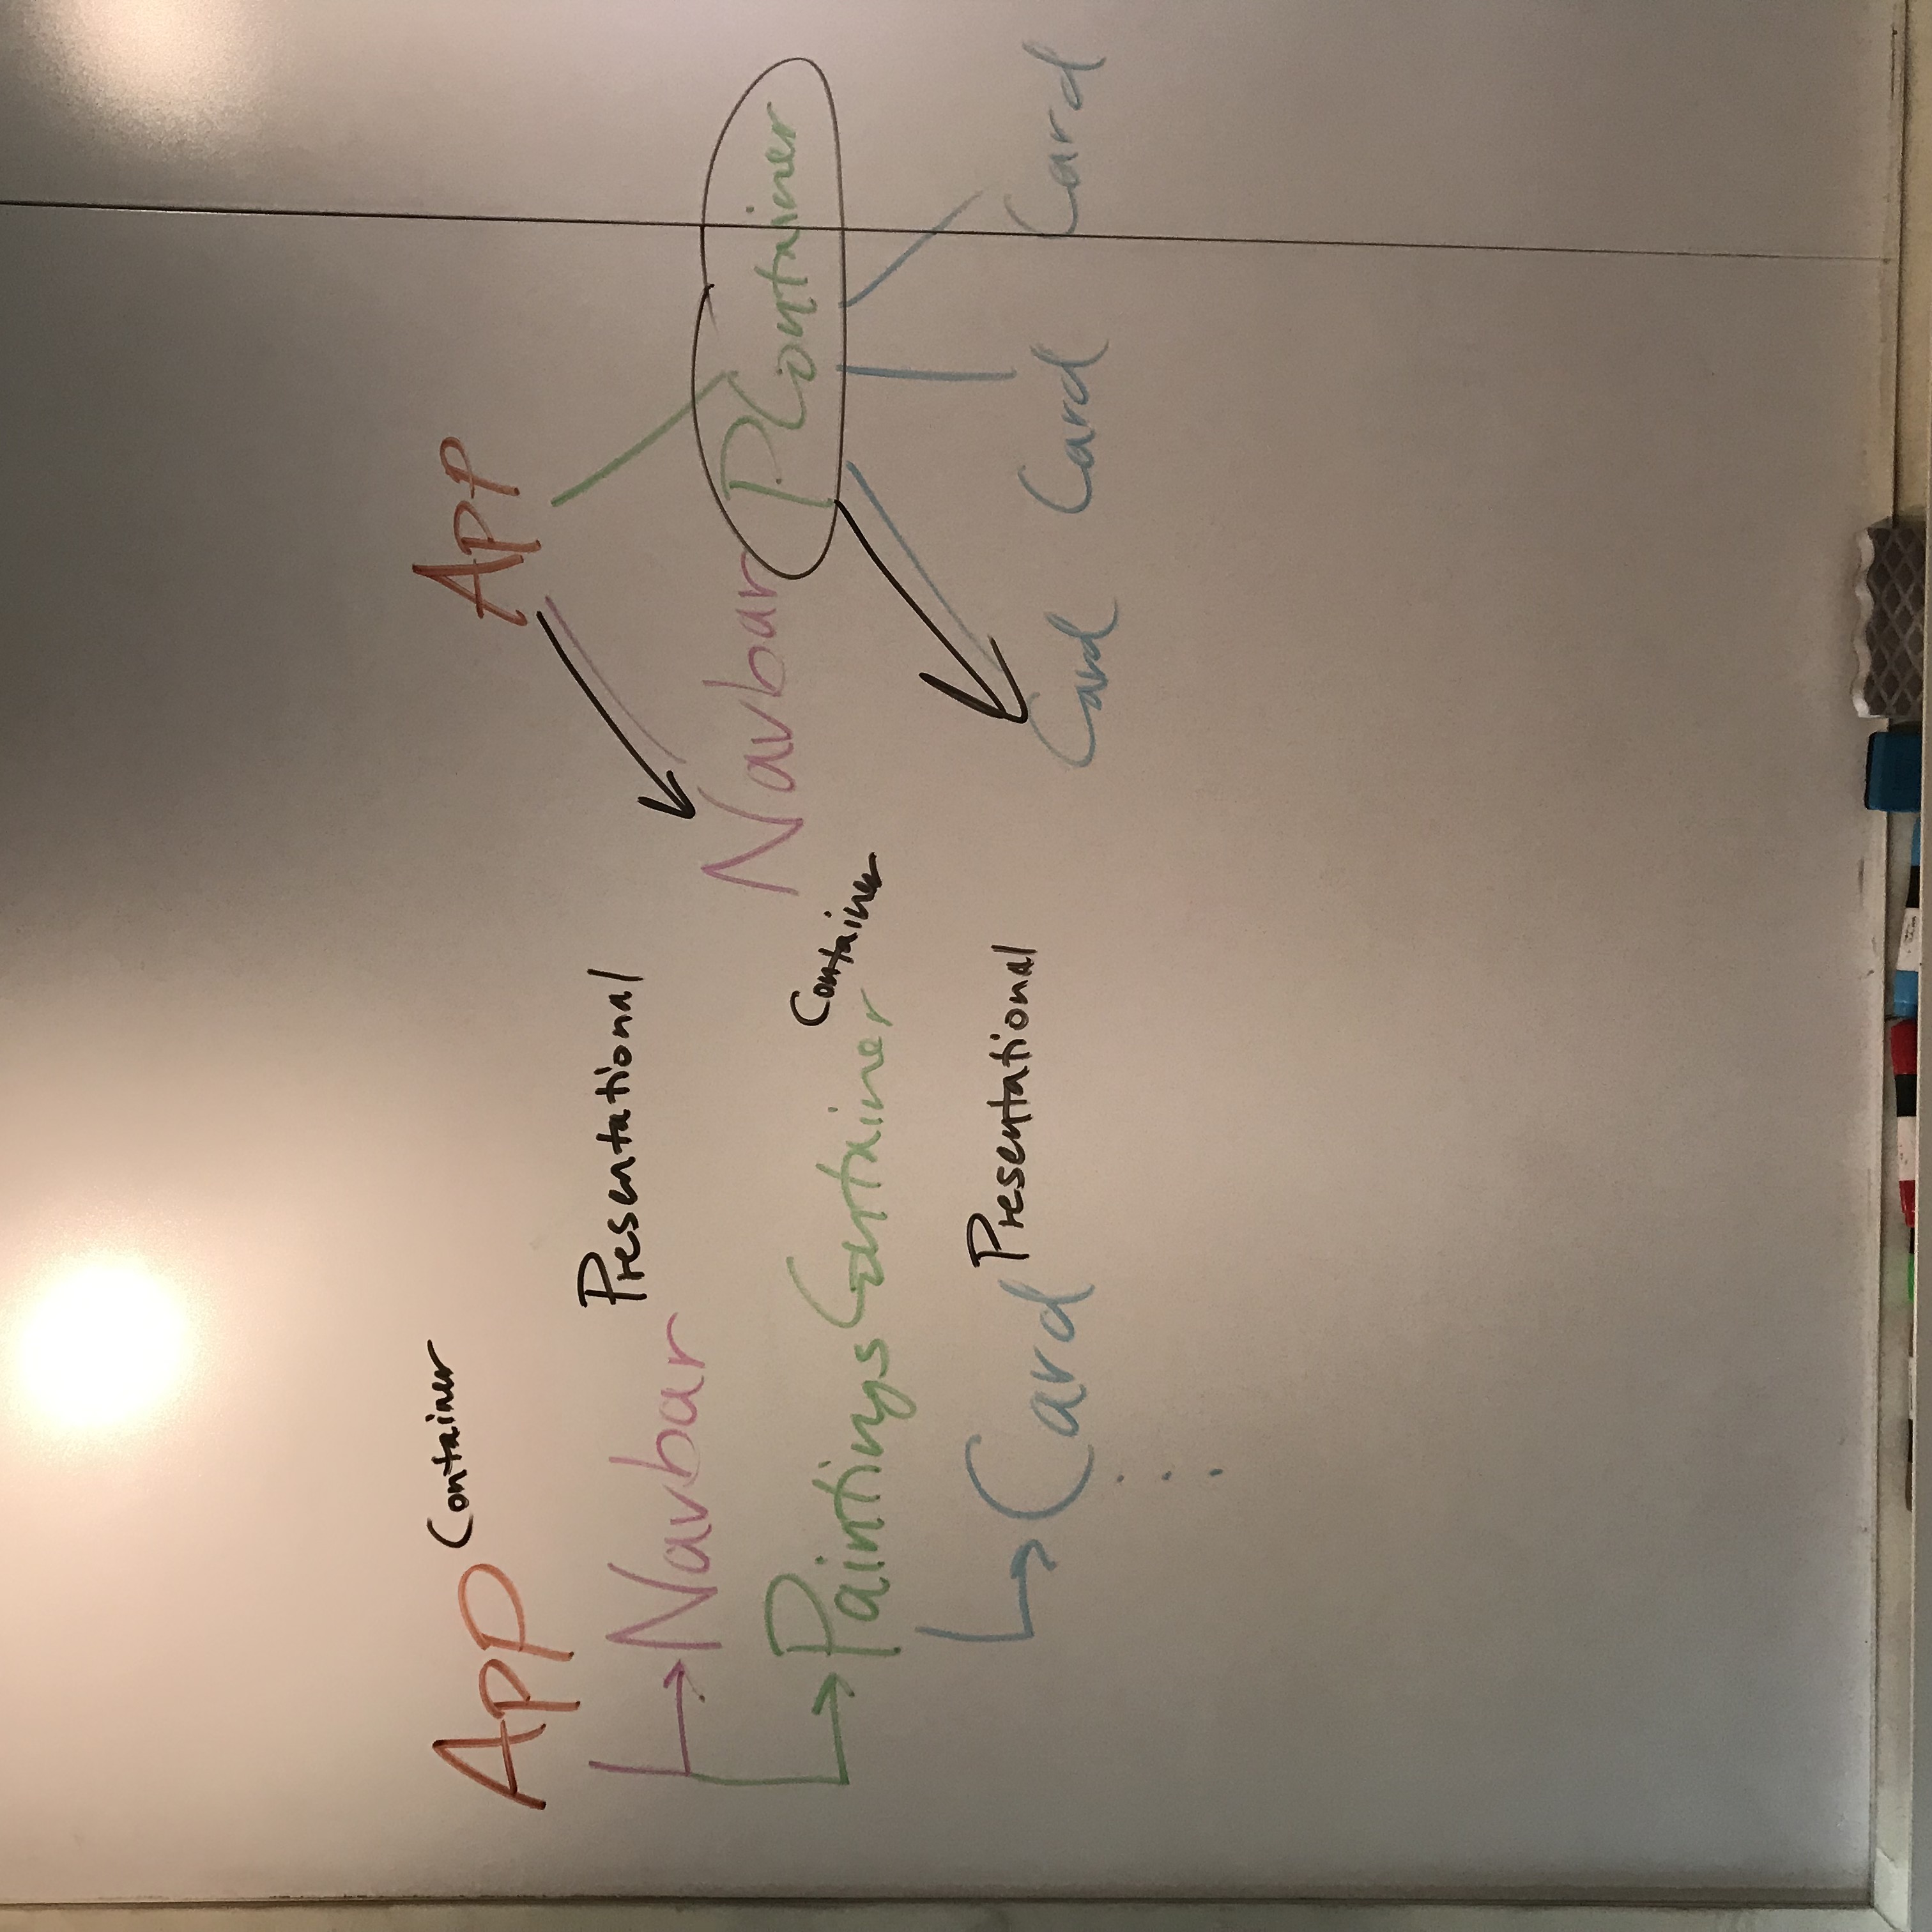 App Container
Navbar Presentational
PaintingsContainer Container
Card Presentational
App
Navbar PContainer
Card Card Card